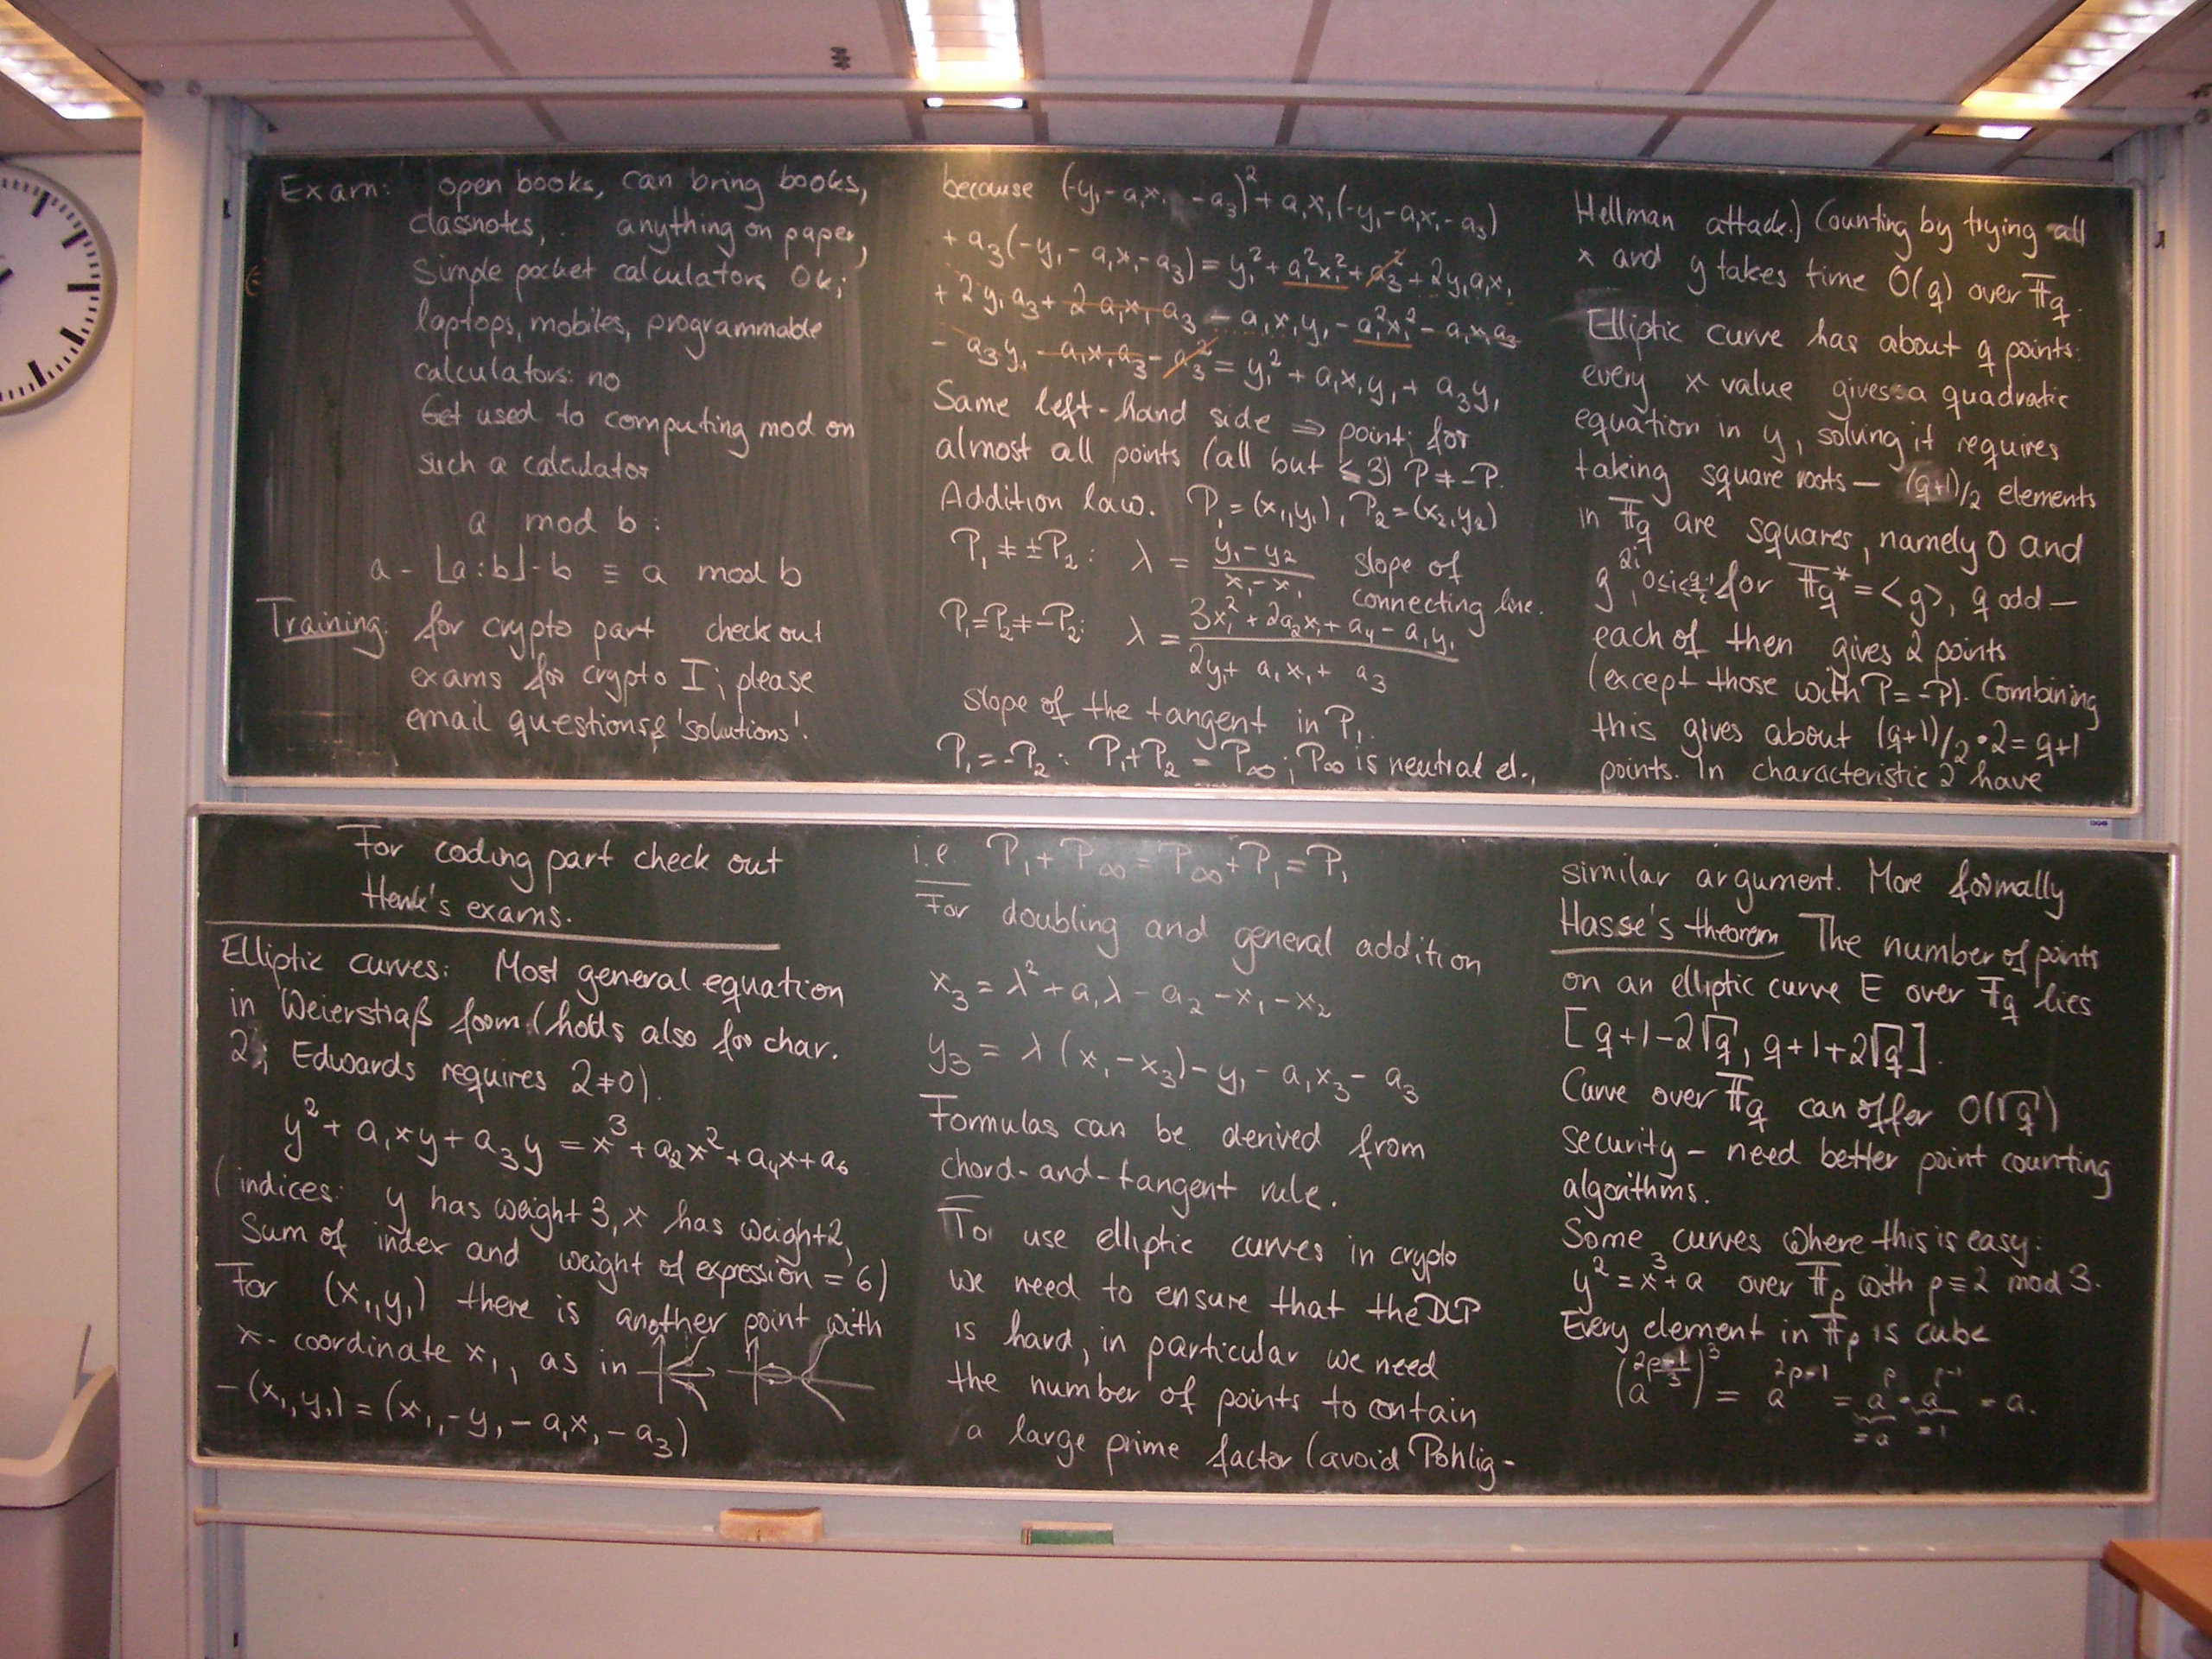 Exam: open books, can bring books,
classnotes, anything on paper,
Simple pocket calculators Ok;
laptops, mobiles, programmable
calculators: no
Get used to computing mod on
such a calculator
a mod b:
a - ⌊a:b⌋·b ≡ a mod b
Training: for crypto part check out
exams for crypto I; please
email questions & 'solutions'.
For coding part check out
Henk's exams.
Elliptic curves: Most general equation
in Weierstraß form (holds also for char.
2; Edwards requires 2≠0).
y² + a₁xy + a₃y = x³ + a₂x² + a₄x + a₆
(indices: y has weight 3, x has weight 2,
Sum of index and weight of expression = 6)
For (x₁,y₁) there is another point with
x-coordinate x₁, as in
-(x₁,y₁) = (x₁, -y₁ - a₁x₁ - a₃)
because (-y₁ - a₁x₁ - a₃)² + a₁x₁(-y₁ - a₁x₁ - a₃)
+ a₃(-y₁ - a₁x₁ - a₃) = y₁² + a₁²x₁² + a₃² + 2y₁a₁x₁
+ 2y₁a₃ + 2a₁x₁a₃ - a₁x₁y₁ - a₁²x₁² - a₁x₁a₃
- a₃y₁ - a₁x₁a₃ - a₃² = y₁² + a₁x₁y₁ + a₃y₁
Same left-hand side ⇒ point; for
almost all points (all but ≤3) P ≠ -P.
Addition law. P₁ = (x₁,y₁), P₂ = (x₂,y₂)
P₁ ≠ ±P₂: λ = (y₁-y₂)/(x₁-x₁) slope of
connecting line.
P₁=P₂≠-P₂: λ = (3x₁² + 2a₂x₁ + a₄ - a₁y₁)/(2y₁ + a₁x₁ + a₃)
slope of the tangent in P₁.
P₁=-P₂: P₁+P₂ = P∞; P∞ is neutral el.,
i.e. P₁ + P∞ = P∞ + P₁ = P₁
For doubling and general addition
x₃ = λ² + a₁λ - a₂ - x₁ - x₂
y₃ = λ(x₁ - x₃) - y₁ - a₁x₃ - a₃
Formulas can be derived from
chord-and-tangent rule.
To use elliptic curves in crypto
we need to ensure that the DLP
is hard, in particular we need
the number of points to contain
a large prime factor (avoid Pohlig-
Hellman attack.) Counting by trying all
x and y takes time O(q) over 𝔽q.
Elliptic curve has about q points:
every x value gives a quadratic
equation in y, solving it requires
taking square roots — (q+1)/2 elements
in 𝔽q are squares, namely 0 and
g²ⁱ, for 𝔽q* = <g>, q odd —
each of then gives 2 points
(except those with P = -P). Combining
this gives about (q+1)/2 · 2 = q+1
points. In characteristic 2 have
similar argument. More formally
Hasse's theorem The number of points
on an elliptic curve E over 𝔽q lies
[q+1-2√q, q+1+2√q].
Curve over 𝔽q can offer O(√q)
security - need better point counting
algorithms.
Some curves where this is easy:
y² = x³ + a over 𝔽p with p ≡ 2 mod 3.
Every element in 𝔽p is cube
(a^((2p-1)/3))³ = a^(2p-1) = a^p · a^(p-1) = a.
= a = 1